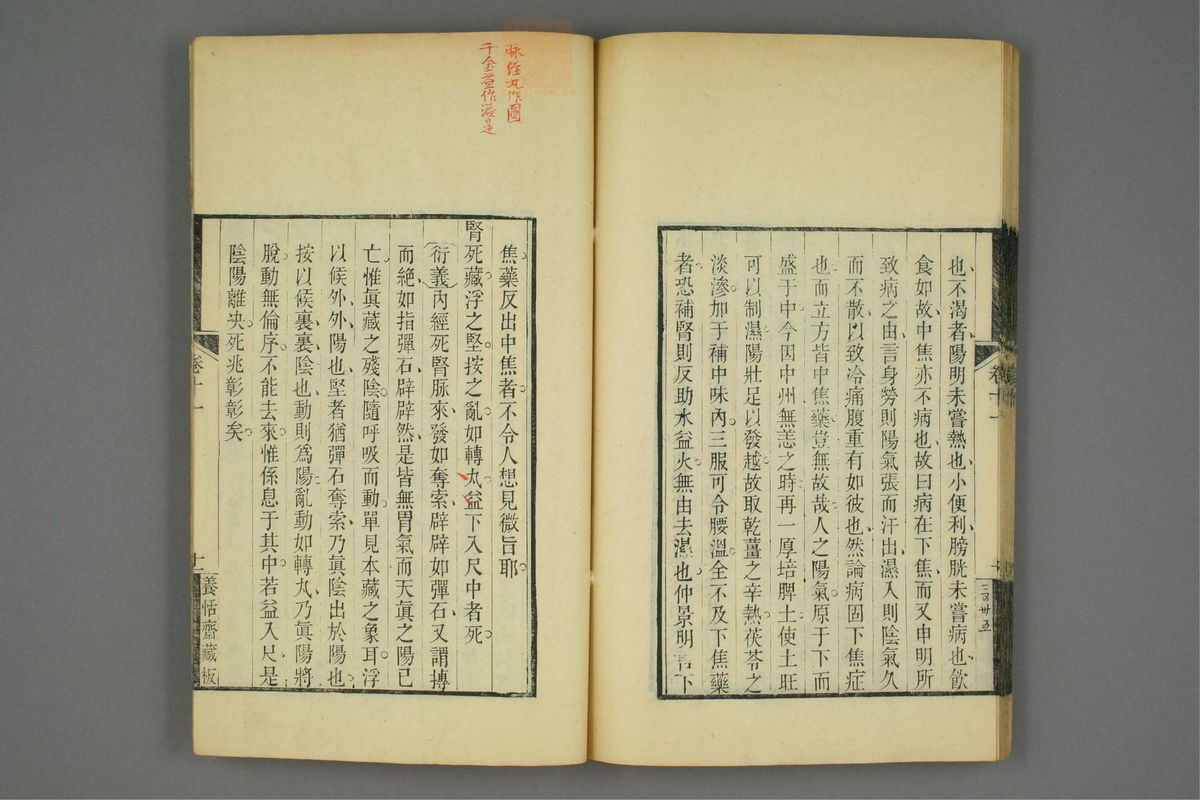 也不渴者陽明未嘗熱也小便利膀胱未嘗病也飲
食如故中焦亦不病也故曰病在下焦而又申明所
致病之由言身勞則陽氣張而汗出濕入則陰氣久
而不散以致冷痛腹重有如彼也然論病固下焦症
也而立方皆中焦藥豈無故哉人之陽氣原于下而
盛于中今因中州無恙之時再一厚培脾土使土旺
可以制濕陽壯足以發越故取乾薑之辛熱茯苓之
淡滲加于補中味內三服可令腰溫全不及下焦藥
者恐補腎則反助水益火無由去濕也仲景明言下
卷十一
二百卅五
脉經丸作圓
千金益作溢是
焦藥反出中焦者不令人想見微旨耶
腎死藏浮之堅按之亂如轉丸益下入尺中者死
（衍義）內經死腎脉來發如奪索辟辟如彈石又謂摶
而絕如指彈石辟辟然是皆無胃氣而天眞之陽已
亡惟眞藏之殘陰隨呼吸而動單見本藏之象耳浮
以候外外陽也堅者猶彈石奪索乃眞陰出於陽也
按以候裏裏陰也動則爲陽亂動如轉丸乃眞陽將
脫動無倫序不能去來惟係息于其中若益入尺是
陰陽離央死兆彰彰矣
卷十一
十一
養恬齋藏板